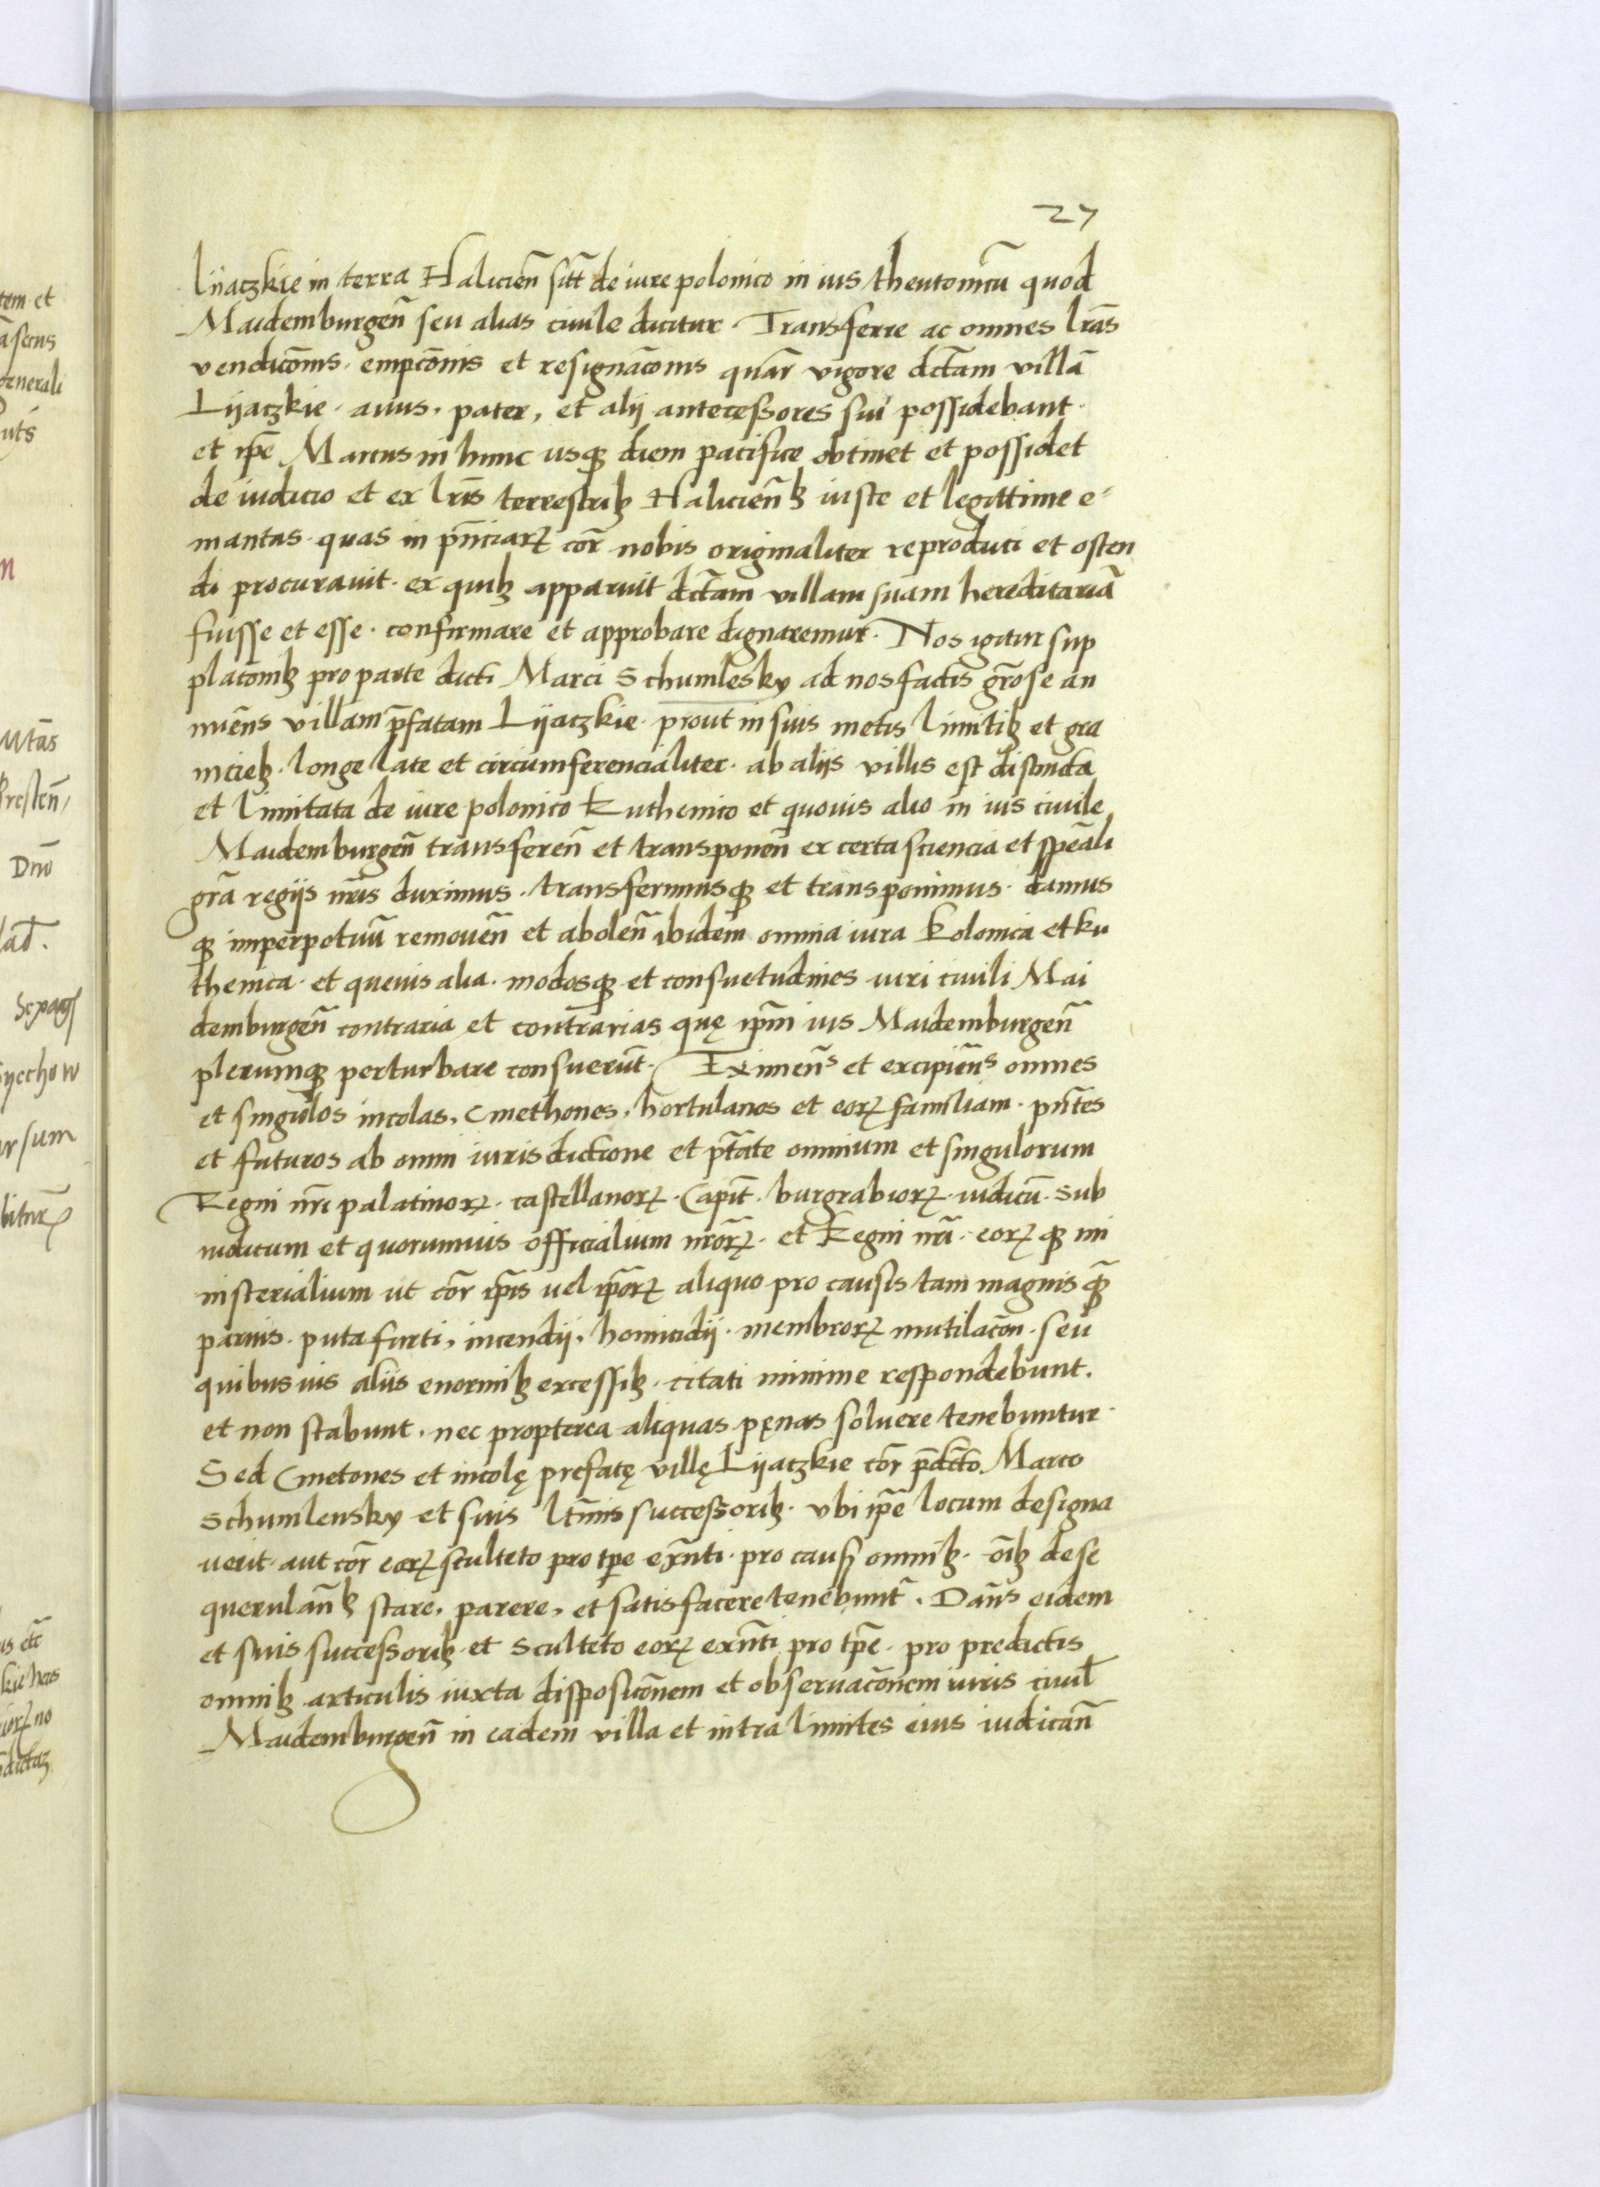 27
lijaczkie in terra Halicień sitā de iure polonico in ius theutonicū quod
Maidemburgeñ seu alias ciuile dicitur. Transferre ac omnes lrās
vendicōnis. empcōnis et resignacōnis quar̄ vigore dc̄tam villā
Lijaczkie. auus. pater, et alij antecessores sui possidebant.
et ip̄e Marcus in hunc usqꝫ diem pacifice obtinet et possidet
de iudicio et ex lr̄is terrestribꝫ Halicień bꝫ iuste et legittime e-
mantas. quas in p̄nciarꝝ cor̄ nobis originaliter reproduci et osten
di procurauit. ex quibꝫ apparuit dc̄tam villam suam hereditariā
fuisse et esse. confirmare et approbare dignaremur. Nos igitur sup
placōnibꝫ pro parte dicti Marci Schumlesky ad nos factis gr̄ose an
nuēns villam p̄fatam Lijaczkie. prout in suis metis limitibꝫ et gra
niciebꝫ. longe late et circumferencialiter. ab aliis villis est distincta
et limitata de iure polonico Ruthenico et quouis alio in ius ciuile
Maidemburgeñ transfereñ et transponeñ ex certa sciencia et sp̄eali
gr̄a regijs nr̄is duximus. transferimusqꝫ et transponimus. damus
qꝫ imperpetuū remoueñ et aboleñ ibidem omnia iura Polonica et Ru
thenica. et queuis alia. modosqꝫ et consuetudines iuri ciuili Mai
demburgeñ contraria et contrarias quę ip̄m ius Maidemburgeñ
plerumqꝫ perturbare consuerūt. Eximēns et excipiēns omnes
et singulos incolas, Cmethones, hortulanos et eorꝝ familiam. pñtes
et futuros ab omni iurisdictione et ptāte omnium et singulorum
Regni nr̄i palatinorꝝ. castellanorꝝ. Capit̄. burgrabiorꝝ. iudicū. sub
iudicum et quorumuis officialium nr̄orꝝ. et Regni nr̄i. eorꝝ qꝫ mi
nisterialium ut cor̄ ip̄is vel ip̄orꝝ aliquo pro causis tam magnis qꝫ̄
paruis. puta furti, incendij, homicidij. membrorꝝ mutilacōn. seu
quibusuis aliis enormibꝫ excessibꝫ. citati minime respondebunt.
et non stabunt. nec propterea aliquas pęnas soluere tenebuntur.
Sed Cmetones et incolę prefatę villę Lijaczkie cor̄ p̄dicto Marco
Schumlensky et suis ltīmis successoribꝫ. vbi ip̄e locum designa
uerit. aut cor̄ eorꝝ sculteto pro tp̄e exñti. pro caus̄ omnibꝫ. oībꝫ de se
querulañ bꝫ stare, parere, et satisfacere tenebunt̄. Dañs eidem
et suis successoribꝫ et Sculteto eorꝝ exñti pro tp̄e. pro predictis
omnibꝫ articulis iuxta disposicōnem et obseruacōnem iuris ciuil̄
Maidemburgeñ in eadem villa et intra limites eius iudicañ